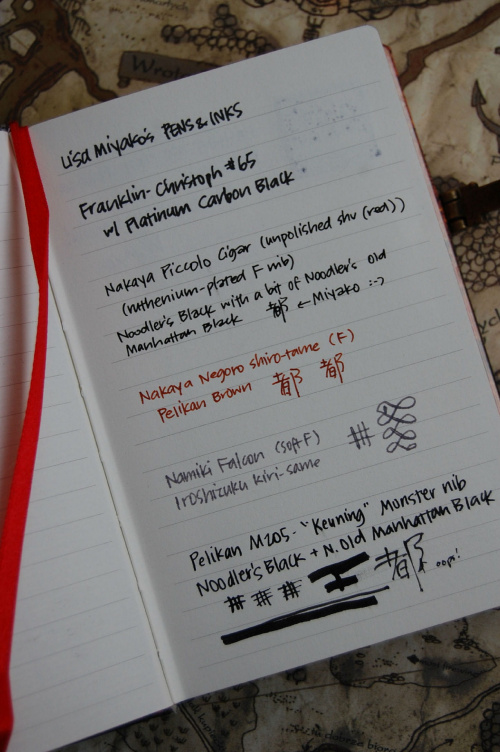 Wrote
Lisa Miyako's PENS & INKS
Franklin-Christoph #65
w/ Platinum Carbon Black
Nakaya Piccolo Cigar (unpolished shu (red))
(ruthenium-plated F nib)
Noodler's Black with a bit of Noodler's old
Manhattan Black 都 ← Miyako :-)
Nakaya Negoro shiro-tame (F)
Pelikan Brown 都 都
Namiki Falcon (soft F)
Iroshizuku kiri-same
Pelikan M205 - "Keuning" Monster nib
Noodler's Black + N. Old Manhattan Black
都 ← oops!